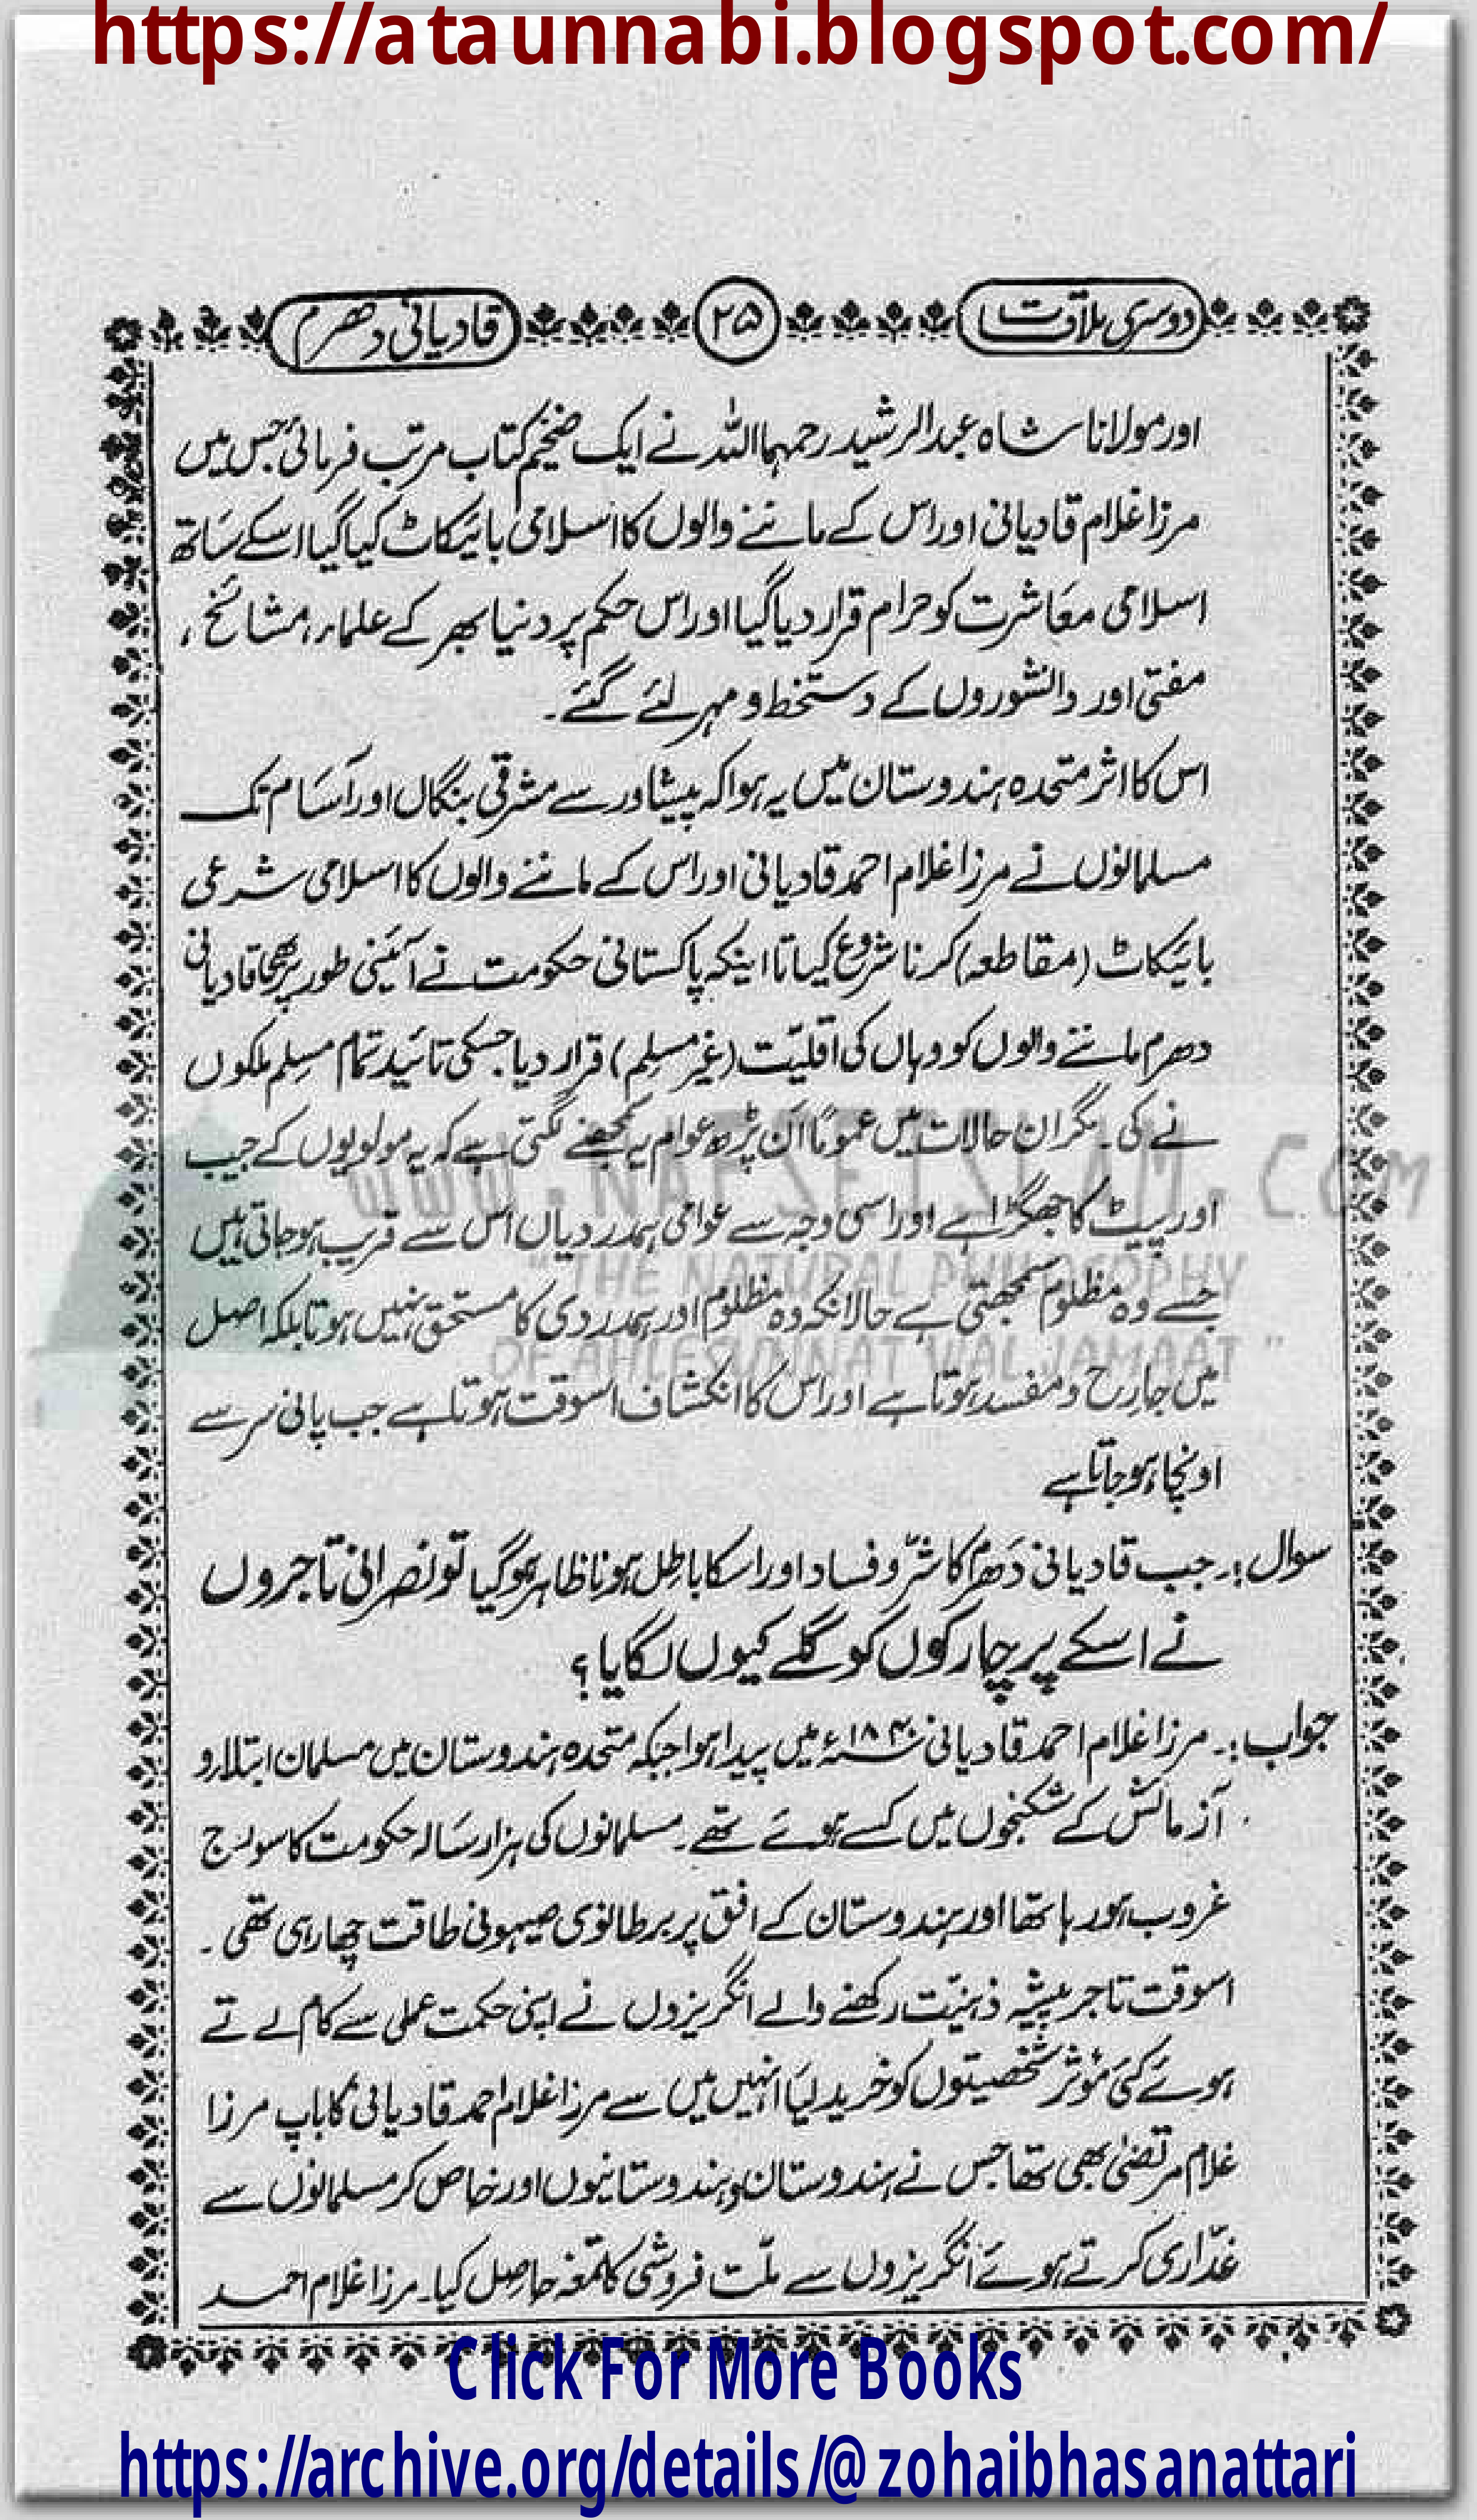 https://ataunnabi.blogspot.com/
دوسری ملاقت ۲۵ قادیانی دھرم
اور مولانا شاہ عبدالرشید رحمہمااللہ نے ایک ضخیم کتاب مرتب فرمائی جس میں
مرزا غلام قادیانی اور اس کے ماننے والوں کا اسلامی بائیکاٹ کیا گیا اسکے ساتھ
اسلامی معاشرت کو حرام قرار دیا گیا اور اس حکم پر دنیا بھر کے علماء، مشائخ،
مفتی اور دانشوروں کے دستخط و مہر لئے گئے۔
اس کا اثر متحدہ ہندوستان میں یہ ہوا کہ پیشاور سے مشرقی بنگال اور آسام تک
مسلمانوں نے مرزا غلام احمد قادیانی اور اس کے ماننے والوں کا اسلامی شرعی
بائیکاٹ (مقاطعہ) کرنا شروع کیا تا اینکہ پاکستانی حکومت نے آئینی طور پر بھی قادیانی
دھرم ماننے والوں کو وہاں کی اقلیّت (غیر مسلم) قرار دیا جسکی تائید تمام مسلم ملکوں
نے کی۔ مگر ان حالات میں عموماً ان پڑھ عوام یہ سمجھنے لگتی ہے کہ یہ مولویوں کے جیب
اور پیٹ کا جھگڑا ہے اور اسی وجہ سے عوامی ہمدردیاں اس سے قریب ہو جاتی ہیں
جسے وہ مظلوم سمجھتی ہے حالانکہ وہ مظلوم اور ہمدردی کا مستحق نہیں ہوتا بلکہ اصل
میں جارح و مفسد ہوتا ہے اور اس کا انکشاف اسوقت ہوتا ہے جب پانی سر سے
اونچا ہو جاتا ہے
www.NAFSEISLAM.COM
"THE NATURAL PHILOSOPHY
OF AHLESUNNAT WAL JAMAAT"
سوال:۔ جب قادیانی دَھرم کا شرّ و فساد اور اسکا باطِل ہونا ظاہر ہو گیا تو نصرانی تاجروں
نے اسکے پرچارکوں کو گلے کیوں لگایا؟
جواب:۔ مرزا غلام احمد قادیانی ۱۸۴۰ء میں پیدا ہوا جبکہ متحدہ ہندوستان میں مسلمان ابتلاء و
آزمائش کے شکنجوں میں کسے ہوئے تھے۔ مسلمانوں کی ہزار سالہ حکومت کا سورج
غروب ہو رہا تھا اور ہندوستان کے افق پر برطانوی صیہونی طاقت چھا رہی تھی۔
اسوقت تاجر پیشہ ذہنیّت رکھنے والے انگریزوں نے اپنی حکمت عملی سے کام لے تے
ہوئے کئی مؤثر شخصیتوں کو خرید لیا انہیں میں سے مرزا غلام احمد قادیانی کا باپ مرزا
غلام مرتضیٰ بھی تھا جس نے ہندوستان و ہندوستانیوں اور خاص کر مسلمانوں سے
غدّاری کرتے ہوئے انگریزوں سے ملّت فروشی کا تمغہ حاصل کیا۔ مرزا غلام احمد
Click For More Books
https://archive.org/details/@zohaibhasanattari